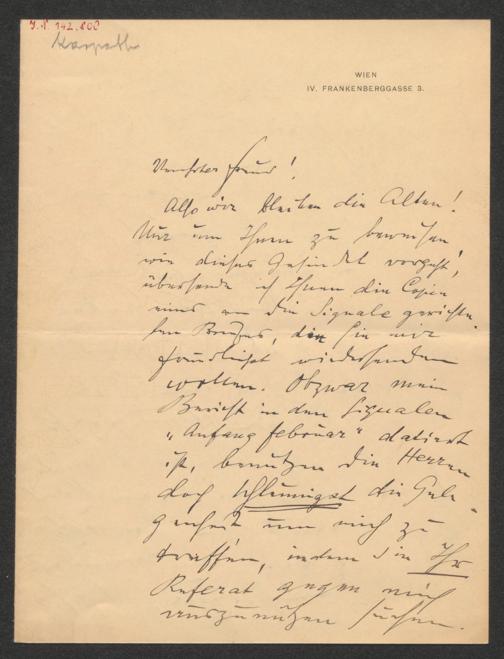 J.N. 142.800
Karpath
WIEN
IV. FRANKENBERGGASSE 3.
Verehrter Freund!
Also wir bleiben die Alten!
Nur um Ihnen zu beweisen
wie dieses Gesindel vorgeht,
übersende ich Ihnen die Copie
eines an die Signale gerichte-
ten Briefes, die Sie mir
freundlichst wiedersenden
wollen. Obzwar mein
Bericht in den Signalen
„Anfang Februar“ datiert
ist, benützen die Herren
doch schleunigst die Gele-
genheit um mich zu
treffen, indem sie Ihr
Referat gegen mich
auszunützen suchen.